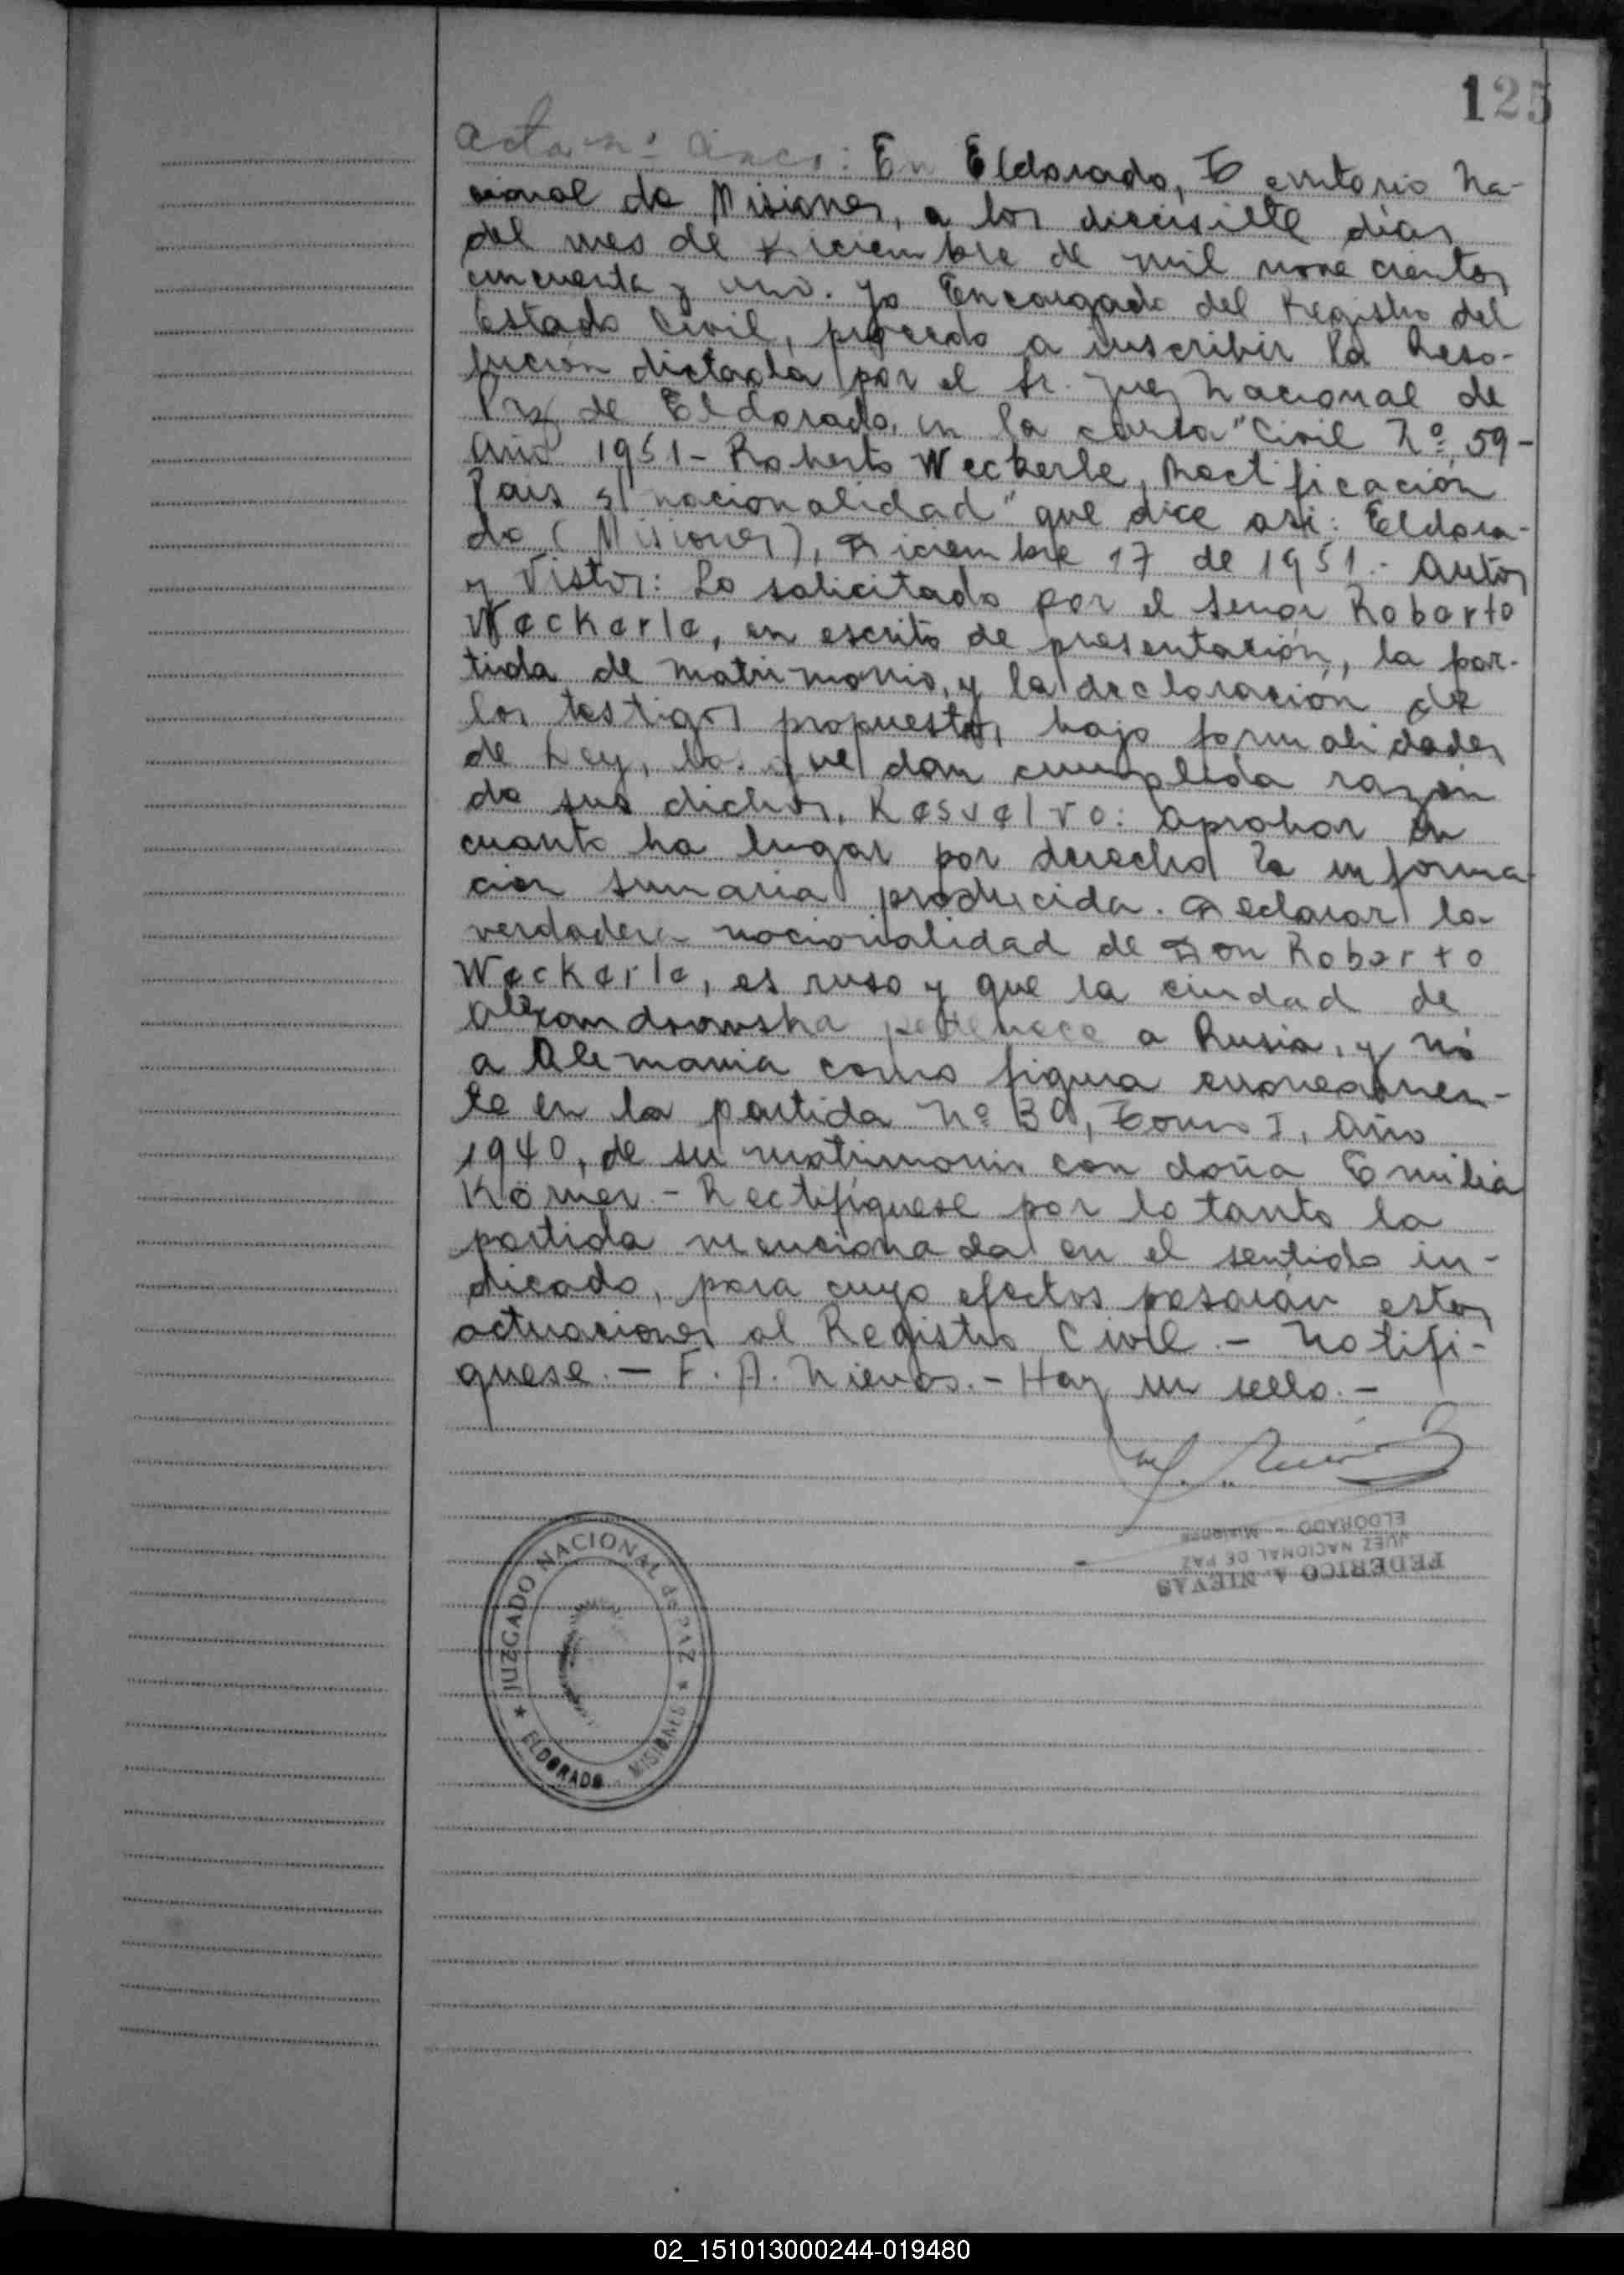 125
Acta nº cinco: En Eldorado, Territorio Na-
cional de Misiones, a los diecisiete días
del mes de Diciembre de mil novecientos
cincuenta y uno. Yo Encargado del Registro del
Estado Civil, procedo a inscribir la Reso-
lución dictada por el Sr. Juez Nacional de
Paz de Eldorado, en la causa "Civil Nº 59-
Año 1951 - Roberto Weckerle, Rectificación
País s/ nacionalidad" que dice así: Eldora-
do (Misiones), Diciembre 17 de 1951.- Autos
y Vistos: Lo solicitado por el Señor Roberto
Weckerle, en escrito de presentación, la par-
tida de matrimonio, y la declaración de
los testigos propuestos, bajo formalidades
de Ley, los que dan cumplida razón
de sus dichos, Resuelvo: Aprobar en
cuanto ha lugar por derecho la informa-
ción sumaria producida. Declarar la
verdadera nacionalidad de Don Roberto
Weckerle, es ruso y que la ciudad de
Alexandrowska pertenece a Rusia, y nó
a Alemania como figura erroneamen-
te en la partida Nº 39, Tomo I, Año
1940, de su matrimonio con doña Emilia
Körner.- Rectifíquese por lo tanto la
partida mencionada en el sentido in-
dicado, para cuyo efectos pasarán estas
actuaciones al Registro Civil.- Notifi-
quese.- F. A. Nievas.- Hay un sello.-
FEDERICO A. NIEVAS
JUEZ NACIONAL DE PAZ
ELDORADO - Misiones
JUZGADO NACIONAL de PAZ
ELDORADO - MISIONES
02_151013000244-019480